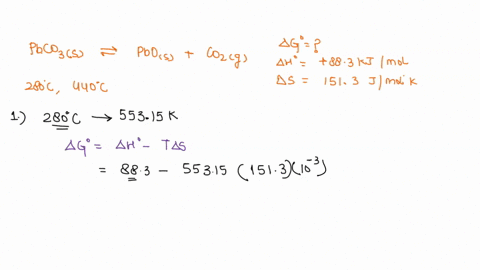 PbCO3(s) ⇌ PbO(s) + CO2(g)
ΔG° = ?
ΔH° = +88.3 kJ/mol
ΔS = 151.3 J/mol·K
280°C, 440°C
1.) 280°C → 553.15 K
ΔG° = ΔH° - TΔS
= 88.3 - 553.15 (151.3)(10⁻³)